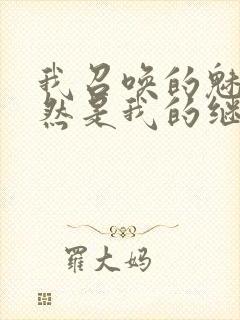 我召唤的魅
然是我的继
羅大妈